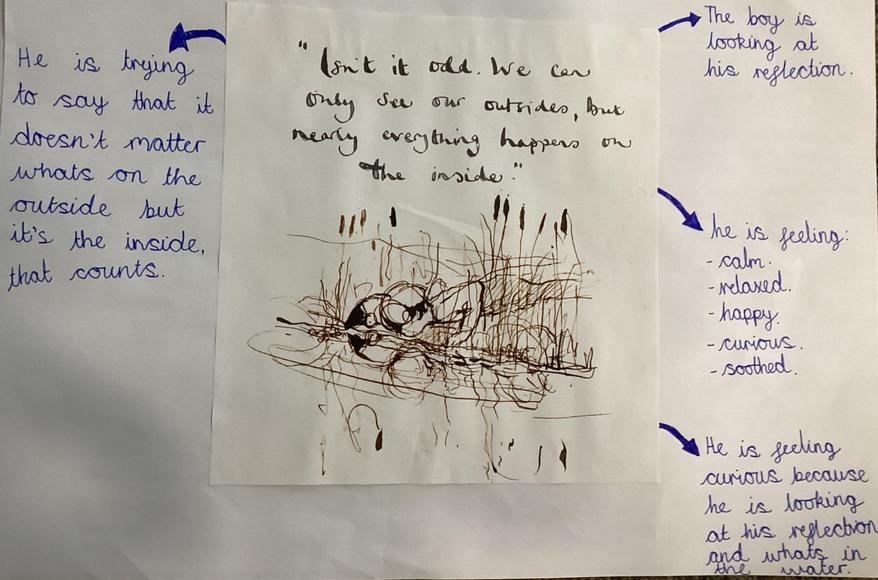 He is trying
to say that it
doesn't matter
whats on the
outside but
it's the inside,
that counts.
"Isn't it odd. We can
only see our outsides, but
nearly everything happens on
the inside."
The boy is
looking at
his reflection.
he is feeling:
- calm.
- relaxed.
- happy.
- curious.
- soothed.
He is feeling
curious because
he is looking
at his reflection
and whats in
the water.